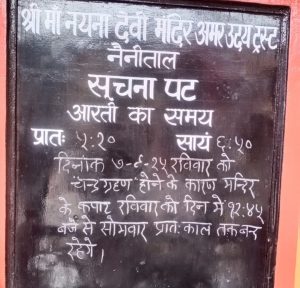 श्री माँ नयना देवी मन्दिर अमर उदय ट्रस्ट
नैनीताल
सूचना पट
आरती का समय
प्रातः ५:१० सायं ६:५०
दिनांक ७-९-२५ रविवार को
चन्द्र ग्रहण होने के कारण मन्दिर
के कपाट रविवार को दिन में १२:४५
बजे से सोमवार प्रातः काल तक बन्द
रहेंगे।